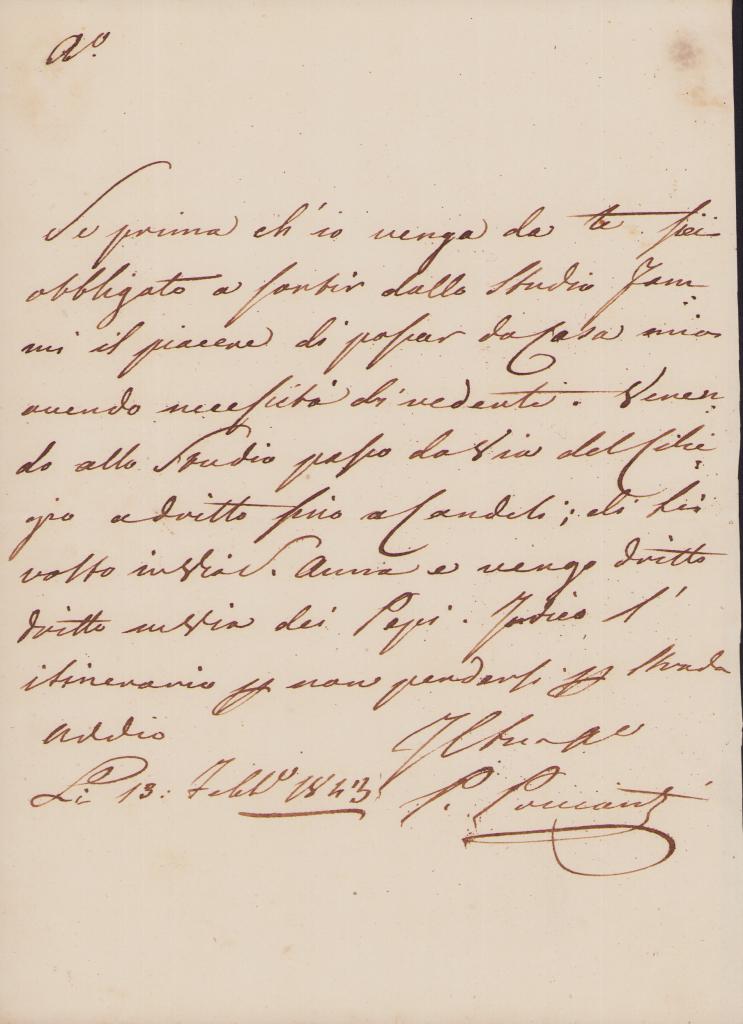 Ao.
Se prima ch'io venga da te sei
obbligato a sortir dallo Studio Fam
mi il piacere di passar da Casa mia
avendo necessità di vederti. Venen
do allo Studio passo da Via del Cilie
gio a dritto fino a Candeli; di lì
volto in Via S. Anna e vengo dritto
dritto in Via dei Pepi. Indico l'
itinerario p non perdersi p Strada
Addio
Il tuo
Li 13: Febb.o 1843 P.